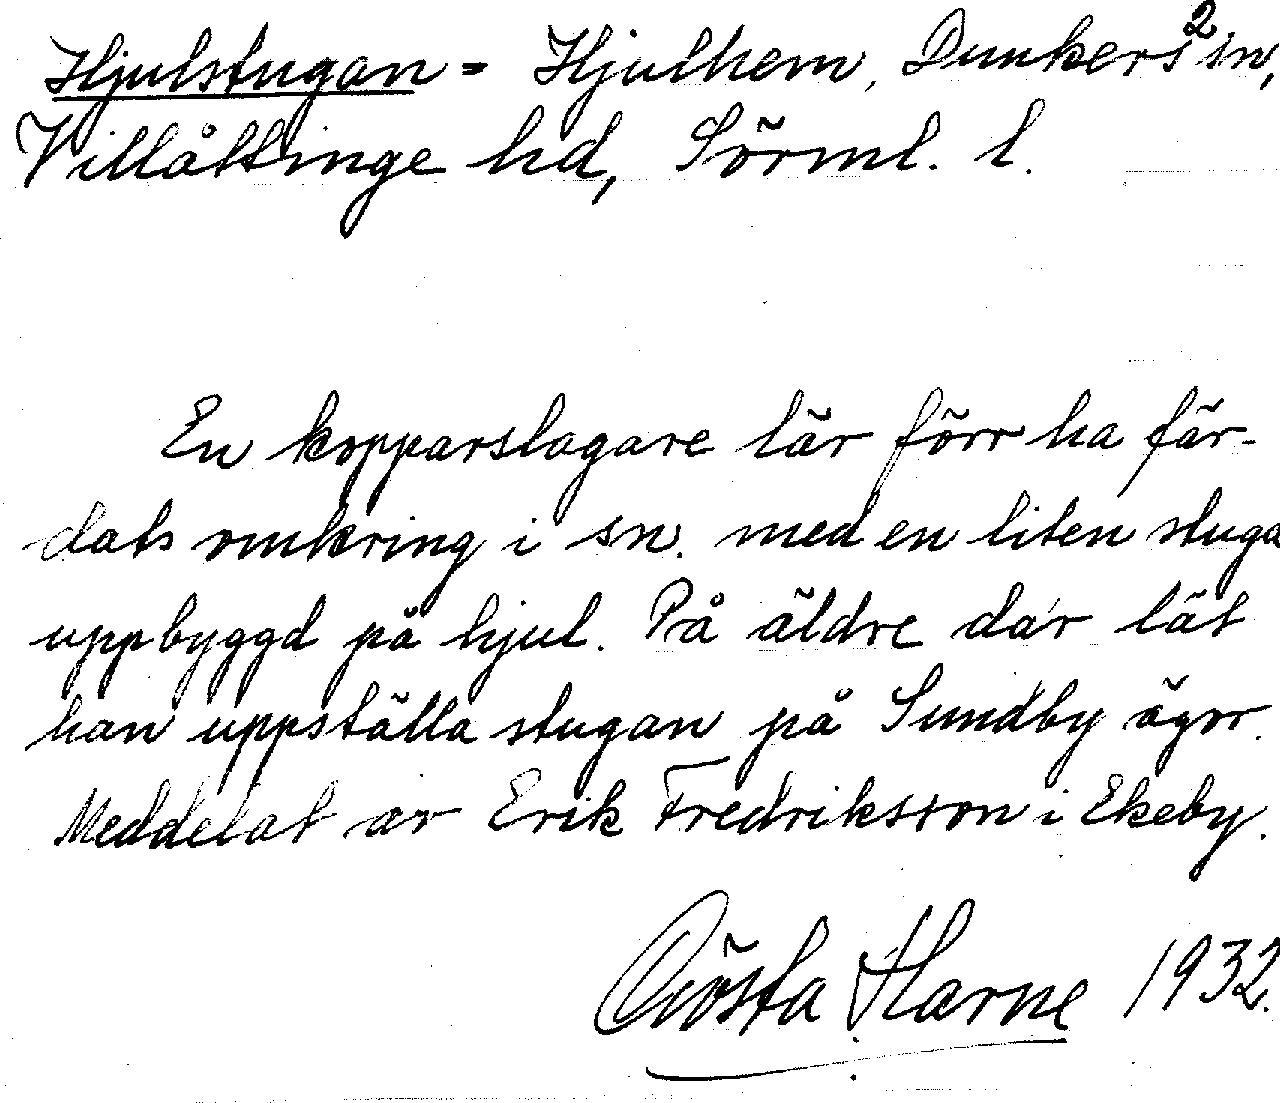 Hjulstugan = Hjulhem, Dunkers² sn,
Villåttinge hd, Sörml. l.
En kopparslagare lär förr ha fär-
dats omkring i sn. med en liten stuga
uppbyggd på hjul. På äldre dar lät
han uppställa stugan på Sundby ägor.
Meddelat av Erik Fredriksson i Ekeby.
Gösta Harne 1932.